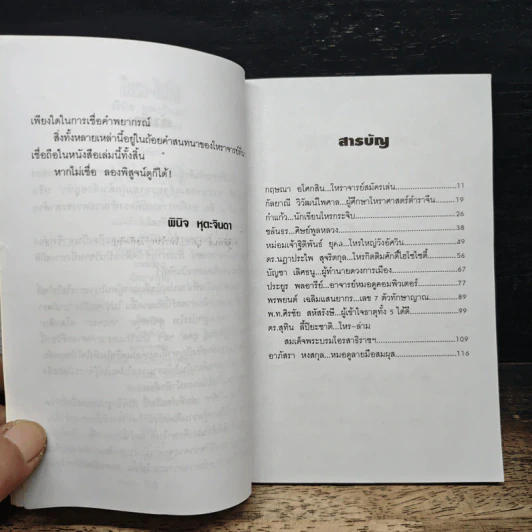 เพียงใดในการเชื่อคำพยากรณ์
สิ่งทั้งหลายเหล่านี้อยู่ในถ้อยคำสนทนาของโหราจารย์ที่น
เชื่อถือในหนังสือเล่มนี้ทั้งสิ้น
หากไม่เชื่อ ลองพิสูจน์ดูก็ได้!
พินิจ หุตะจินดา
สารบัญ
กฤษณา อโศกสิน...โหราจารย์สมัครเล่น 11
กัลยาณี วิวัฒน์ไพศาล...ผู้ศึกษาโหราศาสตร์ตำราจีน 19
กำแก้ว...นักเขียนโหรกระจิบ 26
ชลันธร...ศิษย์พูลหลวง 38
หม่อมเจ้าฐิติพันธ์ ยุคล...โหรใหญ่วังอัศวิน 49
ดร.นฎาประไพ สุจริตกุล...โหรกิตติมศักดิ์ไฮโซไซตี้ 56
บัญชา เลิศธนู...ผู้ทำนายดวงการเมือง 67
ประยูร พลอารีย์...อาจารย์หมอดูคอมพิวเตอร์ 77
พรพยนต์ เฉลิมแสนยากร...เลข 7 ตัวทักษาญาณ 89
พ.ท.ศิรชัย สหัสรังษี...ผู้เข้าใจธาตุทั้ง 5 ได้ดี 99
ดร.สุทิน ลี้ปิยะชาติ...โหร-ล่าม
สมเด็จพระบรมโอรสาธิราชฯ 109
อาภัสรา หงสกุล...หมอดูลายมือสมผุส 116